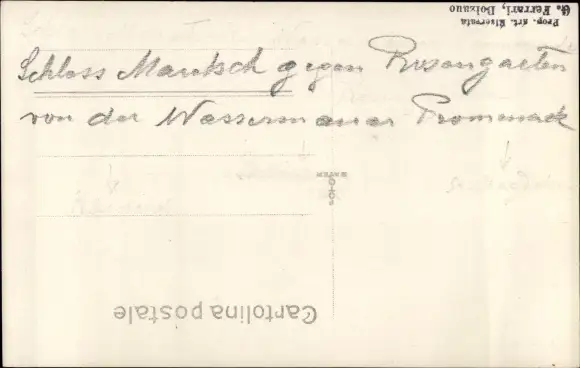 Prop. Art. Riservata
G. Ferrari, Bolzano
Schloss Maretsch gegen Rosengarten
von der Wassermauer Promenade
Cartolina postale